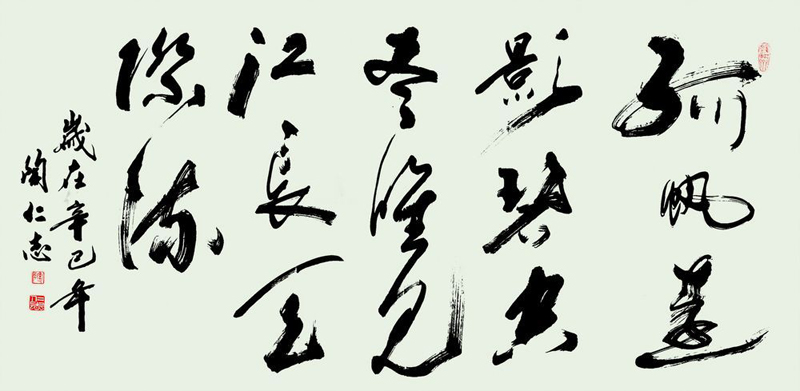 孤帆遠
影碧空
尽惟見
江長天
際流
歲在辛巳年
陶仁志